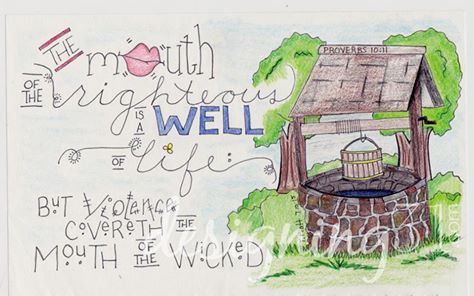 THE
mouth
OF THE righteous
IS A WELL
OF life:
BUT Violence
COVERETH THE
MOUTH OF THE WICKED
PROVERBS 10:11
designing
.com